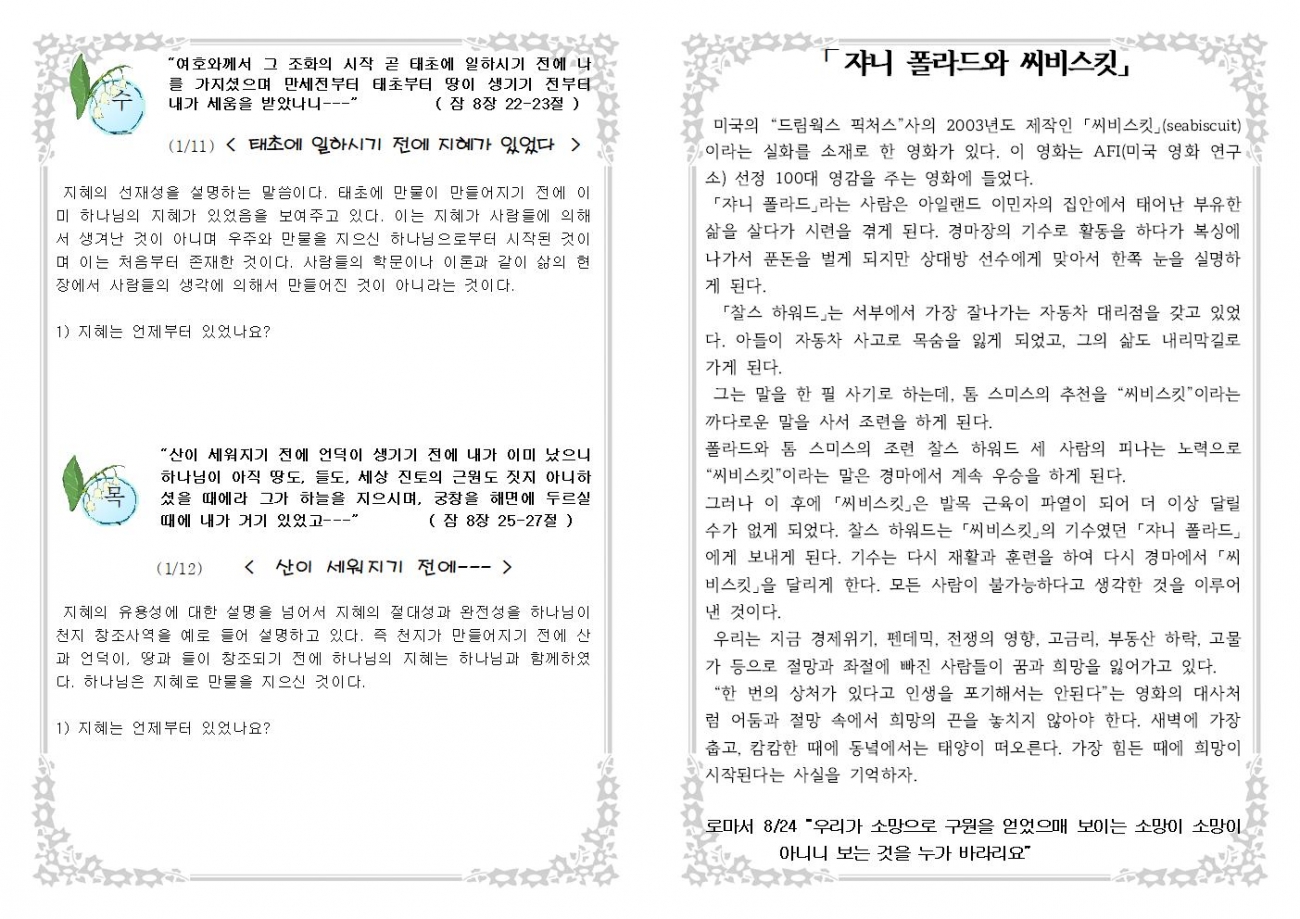 수
"여호와께서 그 조화의 시작 곧 태초에 일하시기 전에 나
를 가지셨으며 만세전부터 태초부터 땅이 생기기 전부터
내가 세움을 받았나니---" ( 잠 8장 22-23절 )
(1/11) < 태초에 일하시기 전에 지혜가 있었다 >
지혜의 선재성을 설명하는 말씀이다. 태초에 만물이 만들어지기 전에 이
미 하나님의 지혜가 있었음을 보여주고 있다. 이는 지혜가 사람들에 의해
서 생겨난 것이 아니며 우주와 만물을 지으신 하나님으로부터 시작된 것이
며 이는 처음부터 존재한 것이다. 사람들의 학문이나 이론과 같이 삶의 현
장에서 사람들의 생각에 의해서 만들어진 것이 아니라는 것이다.
1) 지혜는 언제부터 있었나요?
목
"산이 세워지기 전에 언덕이 생기기 전에 내가 이미 났으니
하나님이 아직 땅도, 들도, 세상 진토의 근원도 짓지 아니하
셨을 때에라 그가 하늘을 지으시며, 궁창을 해면에 두르실
때에 내가 거기 있었고---" ( 잠 8장 25-27절 )
(1/12) < 산이 세워지기 전에--- >
지혜의 유용성에 대한 설명을 넘어서 지혜의 절대성과 완전성을 하나님이
천지 창조사역을 예로 들어 설명하고 있다. 즉 천지가 만들어지기 전에 산
과 언덕이, 땅과 들이 창조되기 전에 하나님의 지혜는 하나님과 함께하였
다. 하나님은 지혜로 만물을 지으신 것이다.
1) 지혜는 언제부터 있었나요?
「쟈니 폴라드와 씨비스킷」
미국의 "드림웍스 픽처스"사의 2003년도 제작인 「씨비스킷」(seabiscuit)
이라는 실화를 소재로 한 영화가 있다. 이 영화는 AFI(미국 영화 연구
소) 선정 100대 영감을 주는 영화에 들었다.
「쟈니 폴라드」라는 사람은 아일랜드 이민자의 집안에서 태어난 부유한
삶을 살다가 시련을 겪게 된다. 경마장의 기수로 활동을 하다가 복싱에
나가서 푼돈을 벌게 되지만 상대방 선수에게 맞아서 한쪽 눈을 실명하
게 된다.
「찰스 하워드」는 서부에서 가장 잘나가는 자동차 대리점을 갖고 있었
다. 아들이 자동차 사고로 목숨을 잃게 되었고, 그의 삶도 내리막길로
가게 된다.
그는 말을 한 필 사기로 하는데, 톰 스미스의 추천을 "씨비스킷"이라는
까다로운 말을 사서 조련을 하게 된다.
폴라드와 톰 스미스의 조련 찰스 하워드 세 사람의 피나는 노력으로
"씨비스킷"이라는 말은 경마에서 계속 우승을 하게 된다.
그러나 이 후에 「씨비스킷」은 발목 근육이 파열이 되어 더 이상 달릴
수가 없게 되었다. 찰스 하워드는 「씨비스킷」의 기수였던 「쟈니 폴라드」
에게 보내게 된다. 기수는 다시 재활과 훈련을 하여 다시 경마에서 「씨
비스킷」을 달리게 한다. 모든 사람이 불가능하다고 생각한 것을 이루어
낸 것이다.
우리는 지금 경제위기, 펜데믹, 전쟁의 영향, 고금리, 부동산 하락, 고물
가 등으로 절망과 좌절에 빠진 사람들이 꿈과 희망을 잃어가고 있다.
"한 번의 상처가 있다고 인생을 포기해서는 안된다"는 영화의 대사처
럼 어둠과 절망 속에서 희망의 끈을 놓치지 않아야 한다. 새벽에 가장
춥고, 캄캄한 때에 동녘에서는 태양이 떠오른다. 가장 힘든 때에 희망이
시작된다는 사실을 기억하자.
로마서 8/24 "우리가 소망으로 구원을 얻었으매 보이는 소망이 소망이
아니니 보는 것을 누가 바라리요"